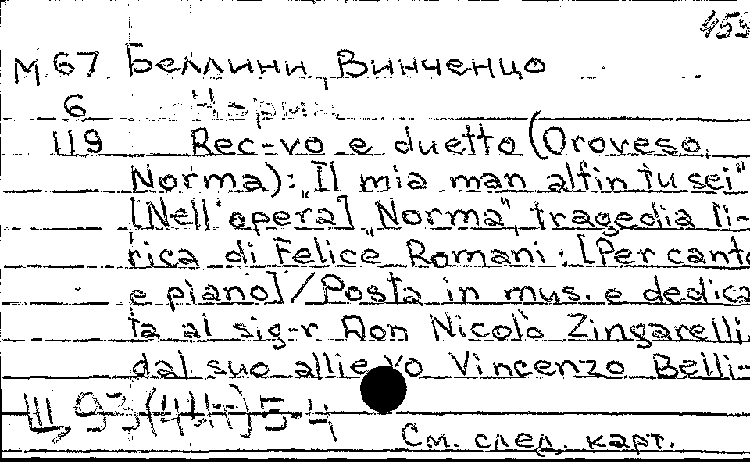 М 67 Беллини, Винченцо
6
119 Rec-vo e duetto (Oroveso,
Norma): „Il mia man alfin tu sei"
[Nell'opera] „Norma", tragedia li-
rica di Felice Romani: [Per canto
e piano] / Posta in mus. e dedica-
ta al sig-r Don Nicolò Zingarelli
dal suo allievo Vincenzo Belli-
III, 93(44т)5-4
См. след. карт.